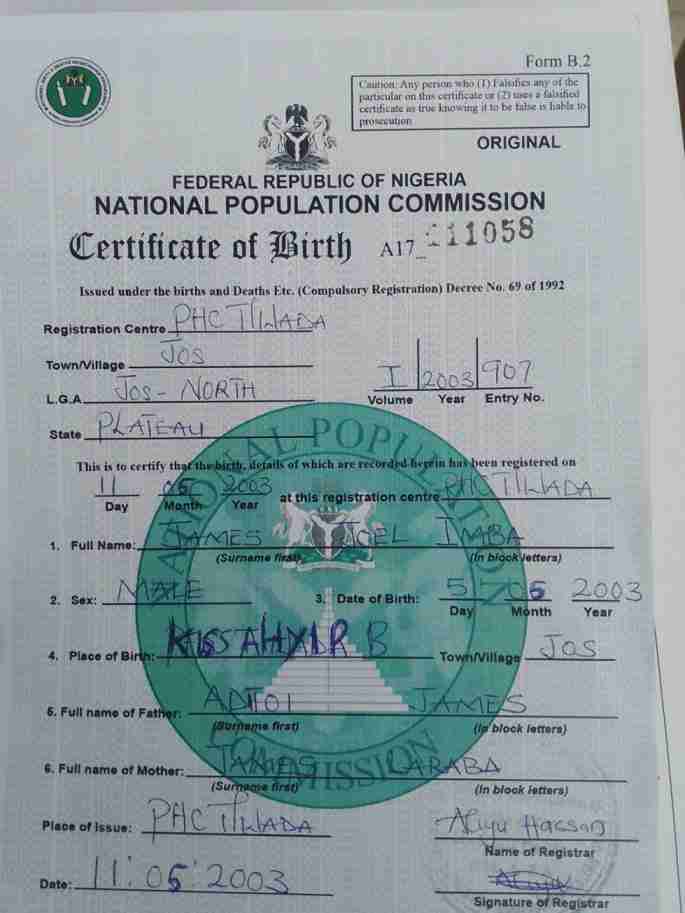 Form B.2
Caution: Any person who (1) Falsifies any of the
particular on this certificate or (2) uses a falsified
certificate as true knowing it to be false is liable to
prosecution
ORIGINAL
FEDERAL REPUBLIC OF NIGERIA
NATIONAL POPULATION COMMISSION
Certificate of Birth A17_111058
Issued under the births and Deaths Etc. (Compulsory Registration) Decree No. 69 of 1992
Registration Centre PHC
Town/Village JOS
L.G.A. JOS - NORTH I 2003 907
Volume Year Entry No.
State PLATEAU
NATIONAL POPULATION COMMISSION
This is to certify that the birth, details of which are recorded herein has been registered on
11 05 2003 at this registration centre PHC
Day Month Year
1. Full Name: JAMES JOEL IMBA
(Surname first) (In block letters)
2. Sex: MALE 3. Date of Birth: 5 05 2003
Day Month Year
4. Place of Birth: Town/Village JOS
5. Full name of Father: JAMES
(Surname first) (In block letters)
6. Full name of Mother: JAMES LARABA
(Surname first) (In block letters)
Place of Issue: PHC Aliyu Hassan
Name of Registrar
Date: 11:05:2003
Signature of Registrar